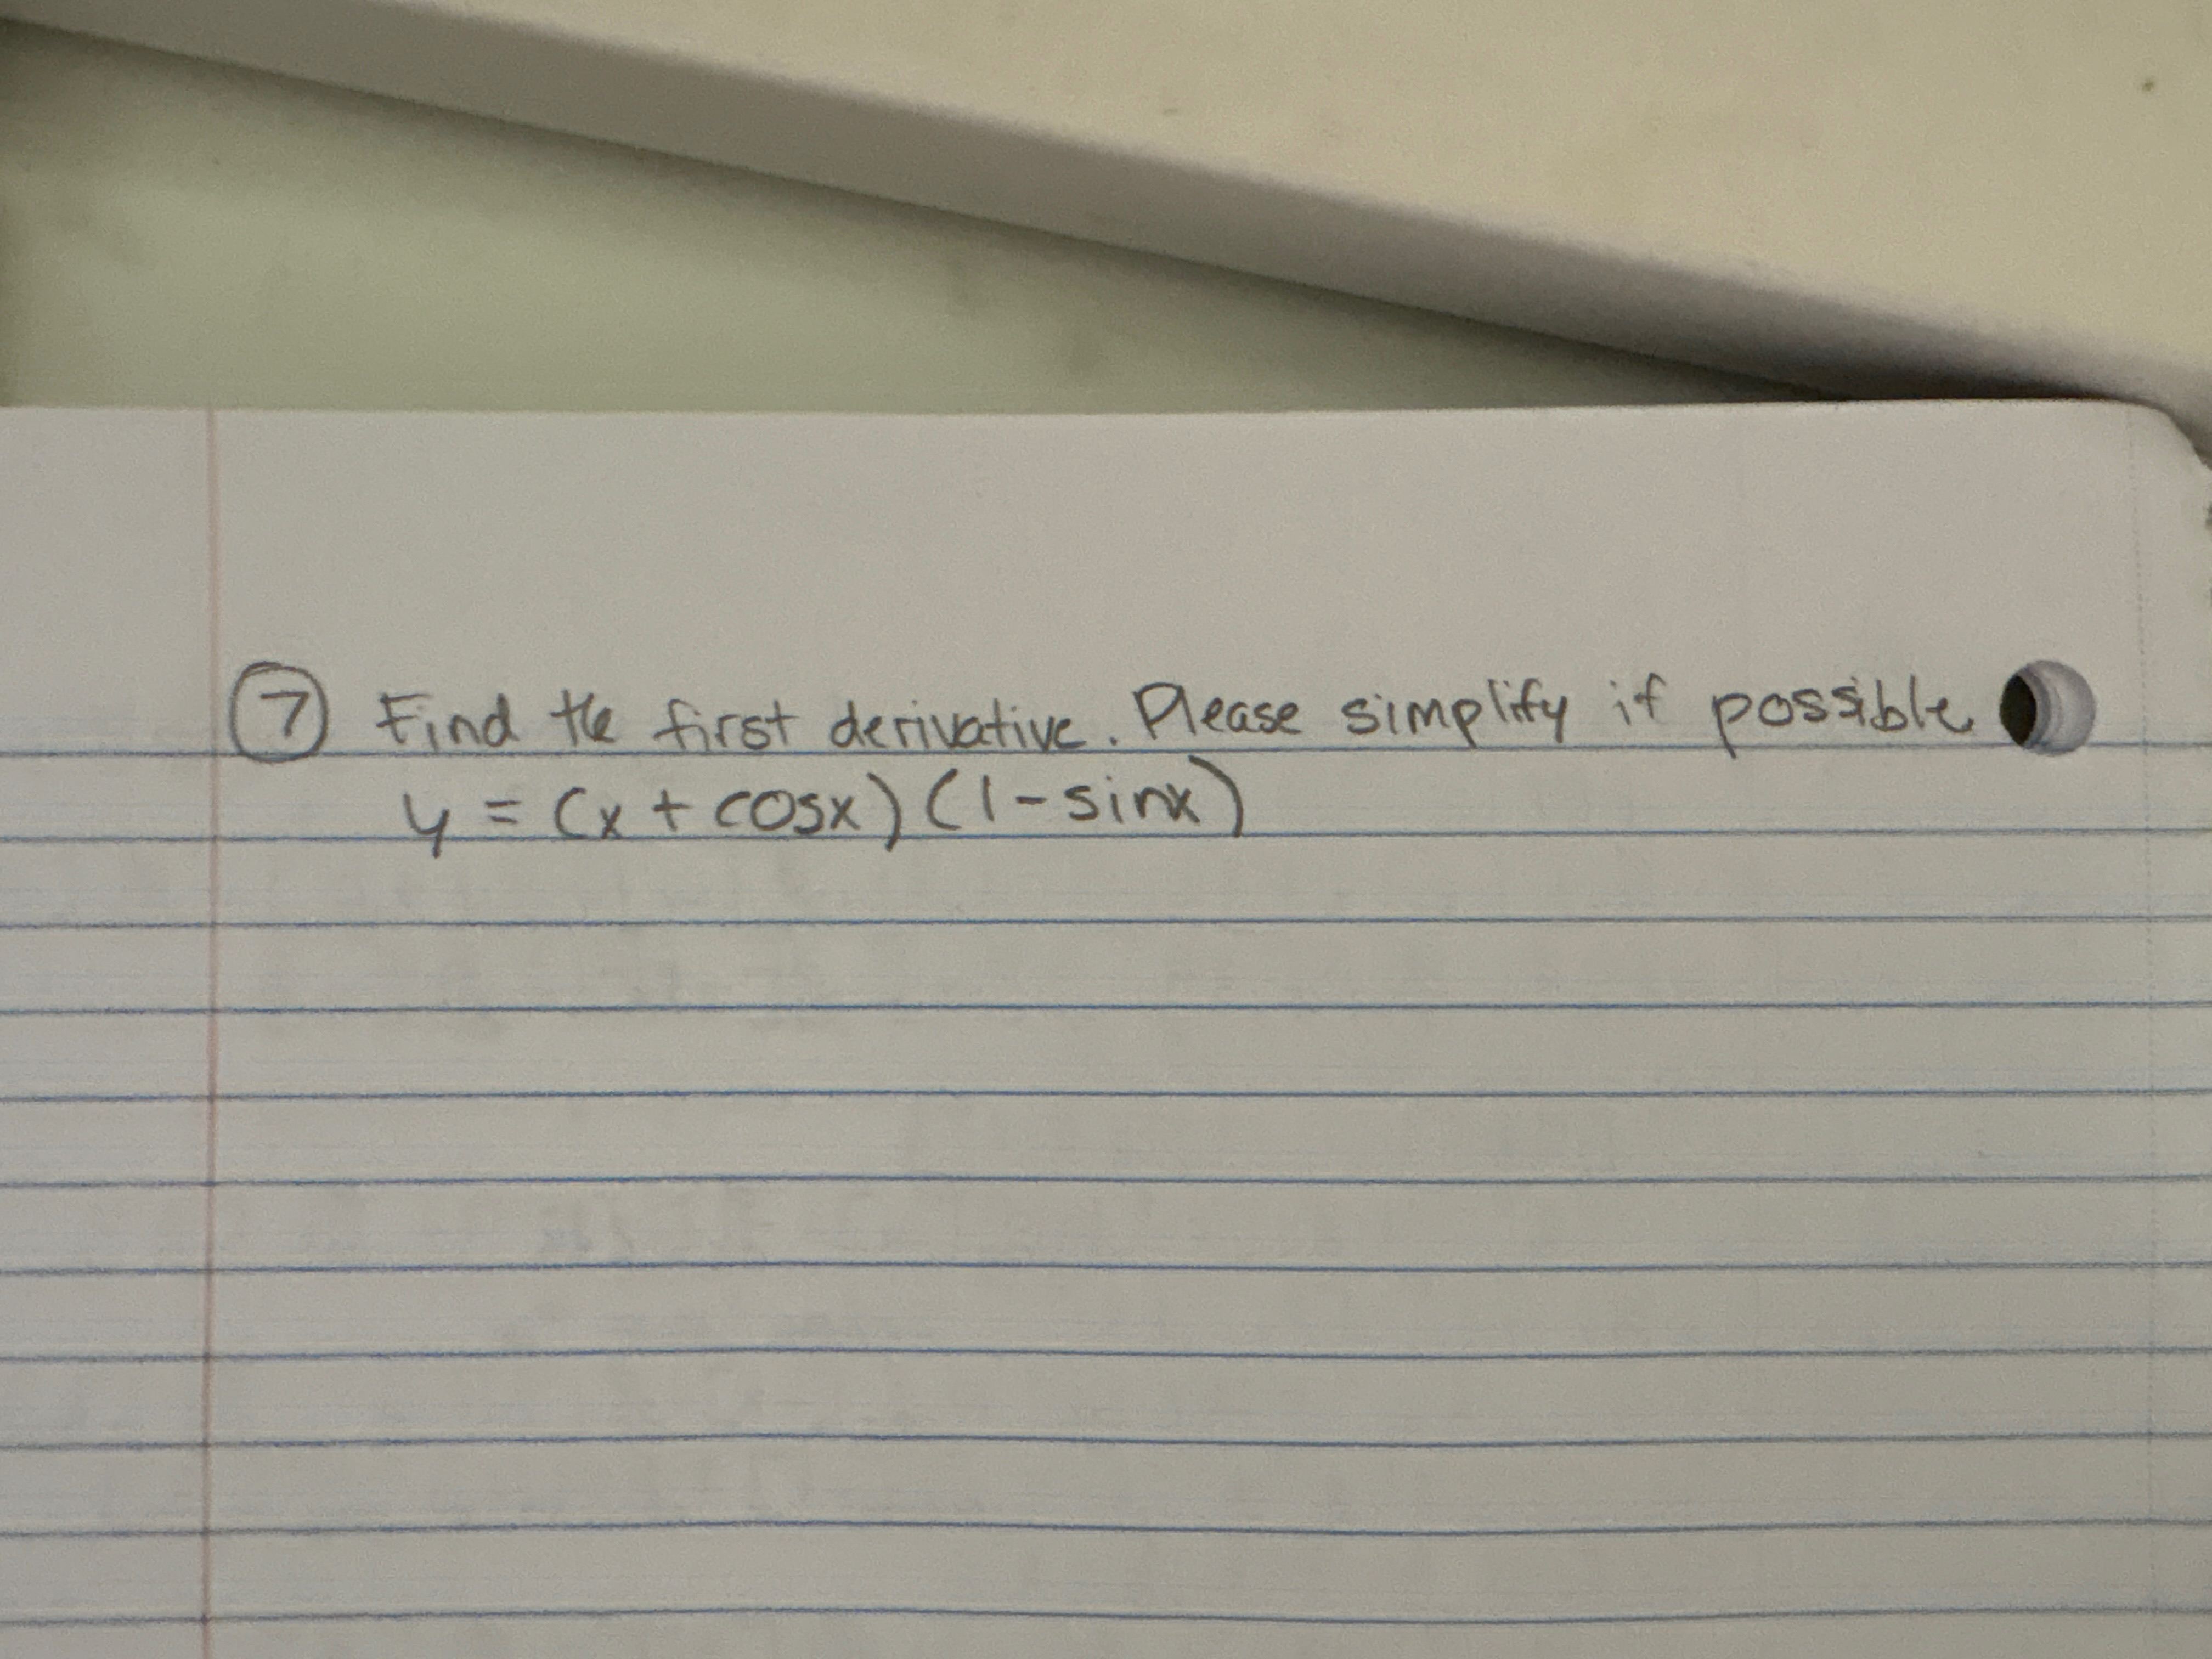 ⑦ Find the first derivative. Please simplify if possible
y = (x + cosx) (1 - sinx)